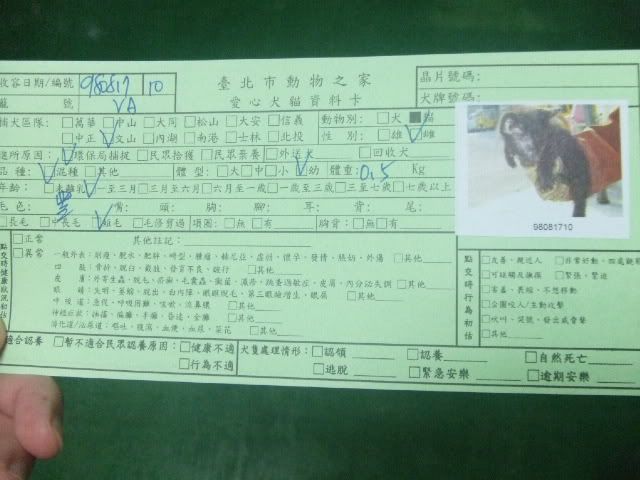 收容日期/編號 980817 10 臺北市動物之家 晶片號碼:
籠 號 VA 愛心犬貓資料卡 犬牌號碼:
捕犬區隊: □萬華 □中山 □大同 □松山 □大安 □信義 動物別: □犬 ■貓
□中正 □文山 □內湖 □南港 □士林 □北投 性 別: □雄 □雌
進所原因: □環保局捕捉 □民眾拾獲 □民眾棄養 □外送犬 □回收犬
品 種: □混種 □其他 體 型: □大□中□小□幼 體重: 0.5 Kg
年齡: □未離乳 □一至三月 □三月至六月 □六月至一歲 □一歲至三歲 □三至七歲 □七歲以上
毛 色: 黑 嘴: 頭: 胸: 腳: 耳: 背: 尾:
□長毛 □中長毛 □短毛 □毛修剪過 項圈: □無 □有 胸背: □無 □有
98081710
點交時健康狀況初估
□正常 其他註記:
□異常 一般外表: 削瘦、脫水、肥胖、畸型、腫瘤、赫尼亞、虛弱、懷孕、發情、脹奶、外傷 □其他
四 肢: 骨折、脫臼、截肢、發育不良、跛行 □其他
皮 膚: 外寄生蟲、脫毛、疥癬、毛囊蟲、黴菌、濕疹、跳蚤過敏症、皮屑、內分泌失調 □其他
呼吸道: 急促、呼吸困難、咳嗽、流鼻膿 □其他
神經症狀: 抽搐、偏癱、手癱、昏迷、全癱 □其他
消化道/泌尿道: 嘔吐、腹瀉、血便、血尿、菜花 □其他
點交時行為初估
□友善、親近人 □非常好動、四處觀察
□可碰觸及撫摸 □緊張、緊迫
□害羞、畏縮、不想移動
□企圖咬人/主動攻擊
□吠叫、哭號、發出威脅聲
□其他
適合認養 □暫不適合民眾認養原因: □健康不適 犬隻處理情形: □認領 □認養 □自然死亡
□行為不適 □逃脫 □緊急安樂 □逾期安樂